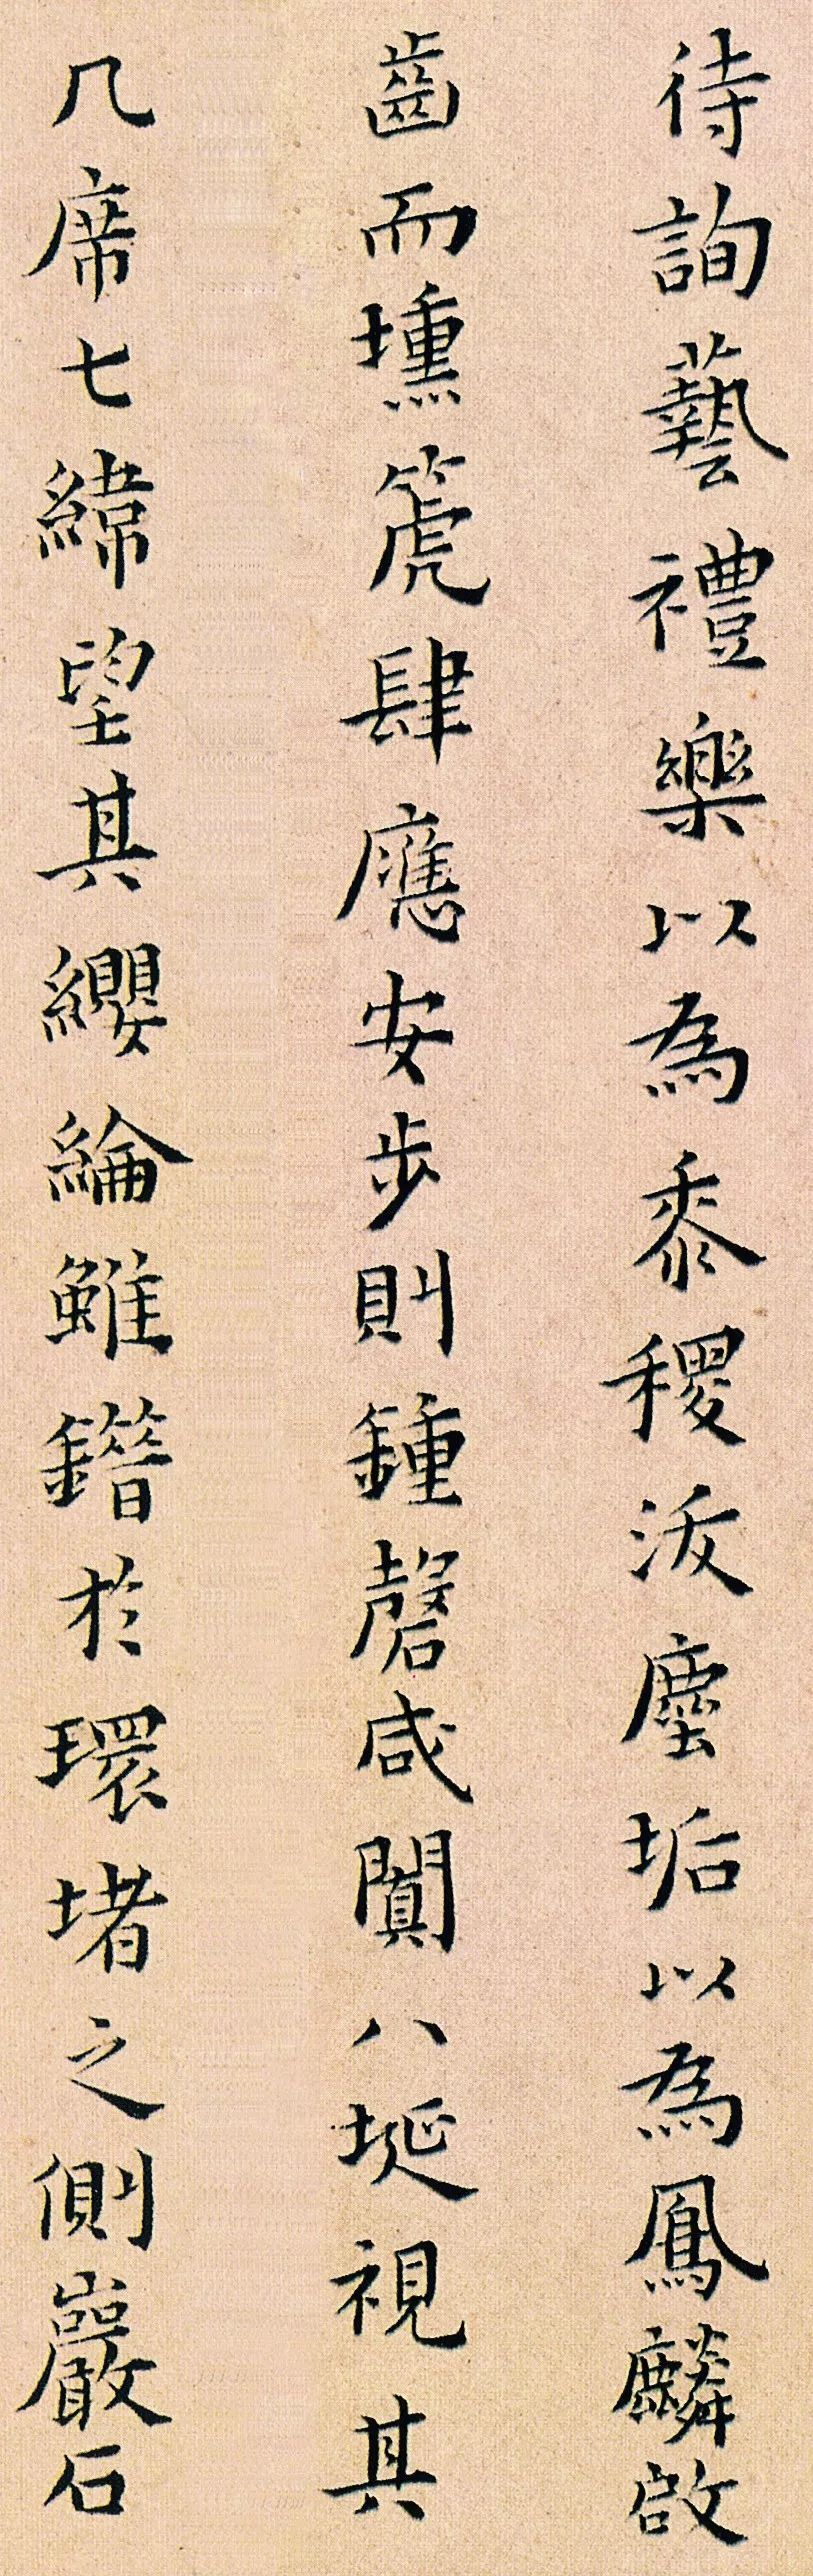 待詢藝禮樂以為黍稷沷塵垢以為鳳麟啟
齒而壎箎肆應安步則鍾磬咸闐八埏視其
几席七緯望其纓綸雖鐕於環堵之側巖石